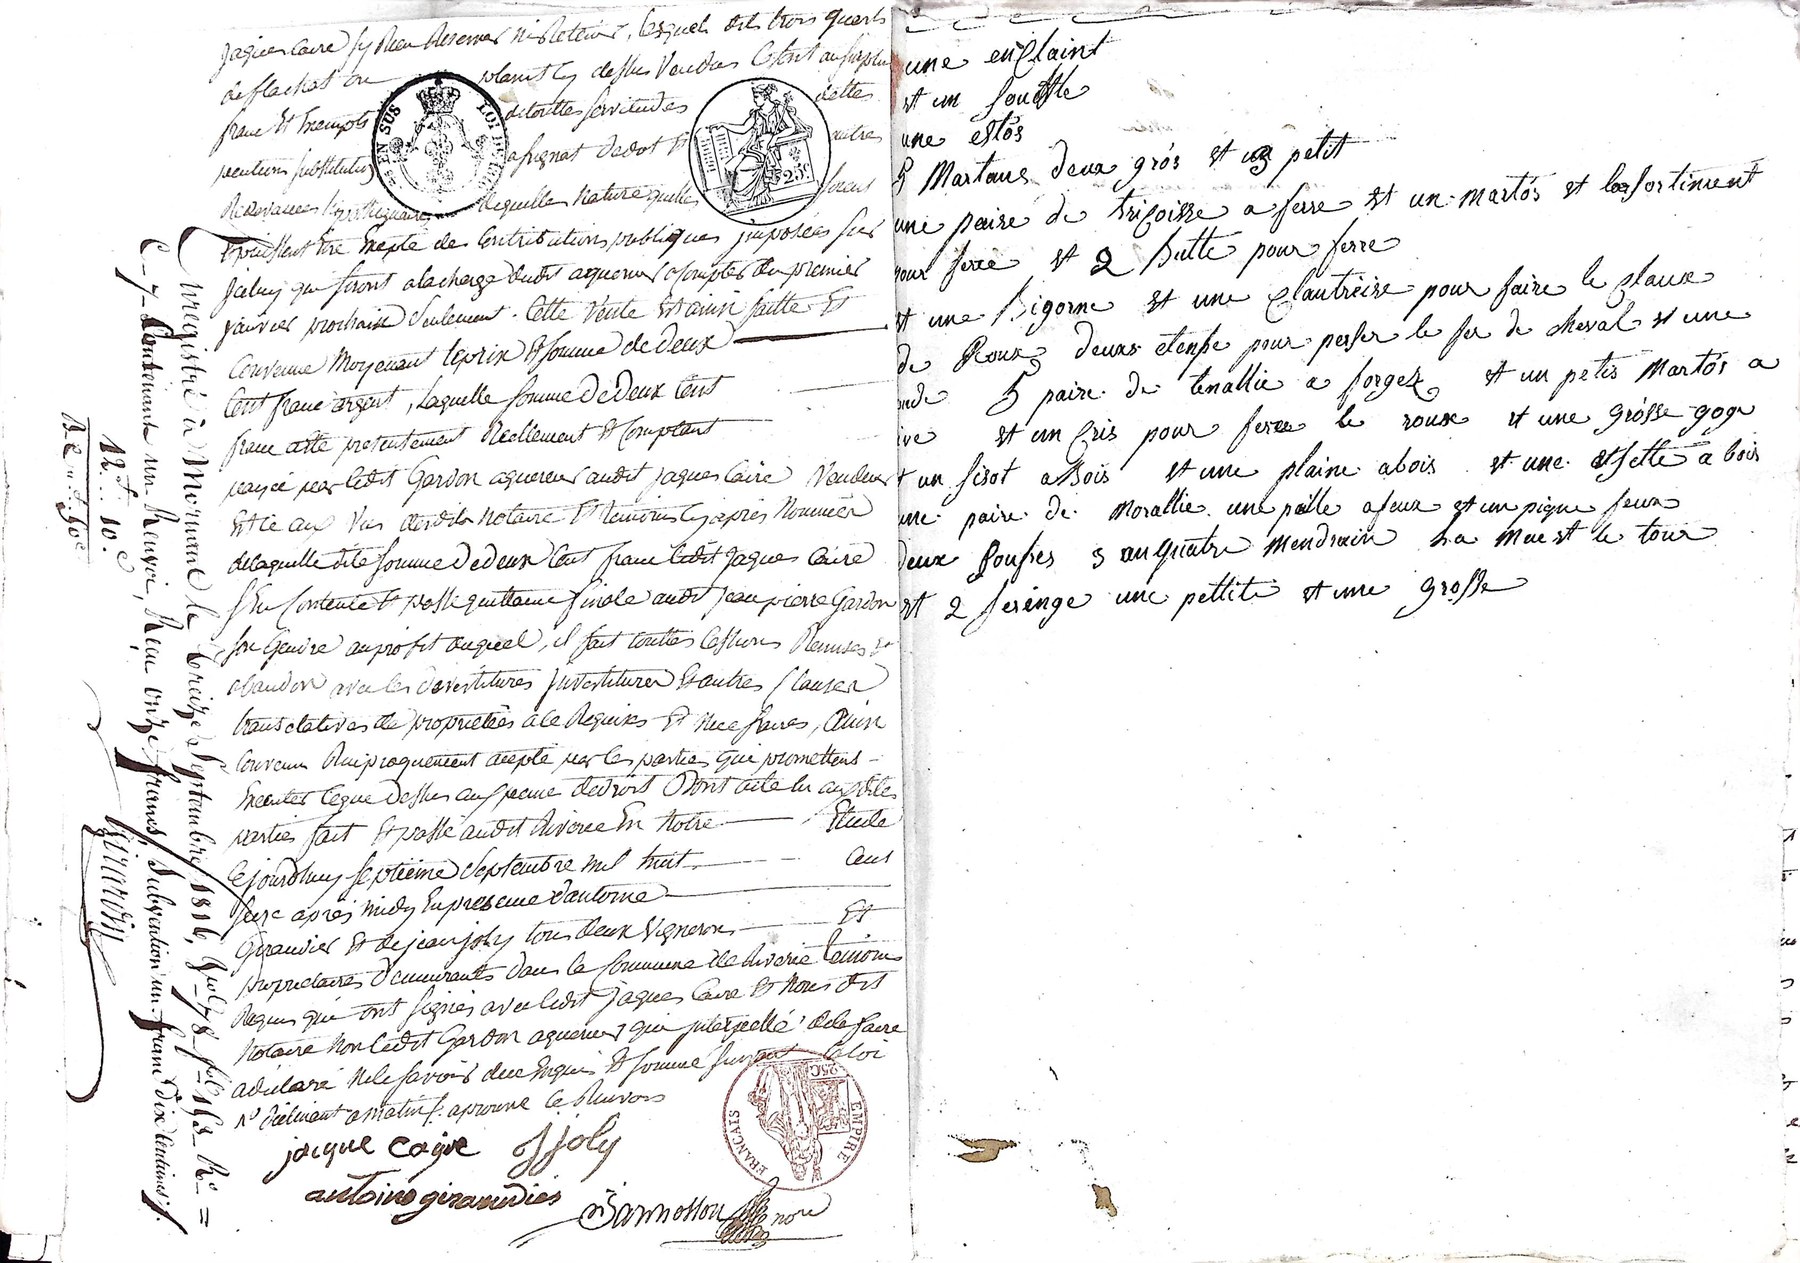 Jaques Caire sy Rien Reserver ni Retenir, lesquels dits trois quarts
de flachat ou plant cy dessus Vendus Etant au surplus
franc Et Exempts de touttes servitudes dettes
pentions substitution assignat de dot Et autres
Redevances de quelle nature quelle soient
Epuissent Etre Exepté des Contributions publiques jmposées sur
jceluy qui seront alacharge dudit aquereur acompter du premier
janvier prochain seulement. Cette Vente Est ainsi faitte Et
Convenue Moyenant leprix Et somme de deux
Cent franc argent, Laquelle somme de deux Cent
franc a eté presentement Réellement Et Comptant
payée par ledit Gardon aquereur audit jaques Caire Vandeur
Et ce au Vus dudit Notaire Et temoins cy après Nommés
de laquelle dite somme de deux Cent franc ledit Jaques Caire
s'En Contente Et passe quittance finale audit jean pierre Gardon
son Gendre au profit duquel, il fait touttes Cessions Remises Et
abandon avec les devestitures jnvestitures Et autres Clauses
translatives de proprietées a ce Requises Et Necessaires, Ainsi
Convenu Reciproquement accepté par les parties qui promettent
Executer ceque dessus aux peine de droit Dont acte lu auxdites
parties fait Et passé audit Riverie En Notre Etude
Cejourdhuy septieme septembre mil huit Cent
seize après midy En presence d'antoine
Giraudier Et de jean joly tous deux Vignerons Et
proprietaires demeurants dans la Commune de Riverie temoins
Requis qui ont signés avec ledit jaques Caire Et Nous dit
Notaire Non ledit Gardon aquereur qui jnterpellé de le faire
a déclaré Ne le savoir de ce Enquis Et sommé suivant la loi
aprouvé le Renvois
jacque caire J joly
antoine giraudier
Jannosson nore
Enregistré à Mornant le treize Septembre 1816, Vol. 78 fol. 163 Ro
C. 7. Contenant un Renvoi, Reçu onze francs, Subvention un franc dix Centimes.
Girardin
12f 10c
EN SUS
LOI DE
25c
EMPIRE
FRANCAIS
25C
une enclaint
et un souffle
une estos
5 Martaus deux gros et 3 petit
une paire de tricoisse a ferre et un martos et lasortiment
pour ferre et 2 butte pour ferre
et une Bigorne et une Clautreire pour faire le claux
de Roux deux etenpe pour perser le fer de cheval et une
5 paire de tenallie a forgez et un petis Martos a
et un Cris pour ferre le roux et une grosse goge
et un sisot a Bois et une plaine a bois et une essette a bois
une paire de Morallie une pille a feux et un pique feux
deux pouses 3 au quatre Mendrain La Mue et le tour
et 2 seringe une pettite et une grosse